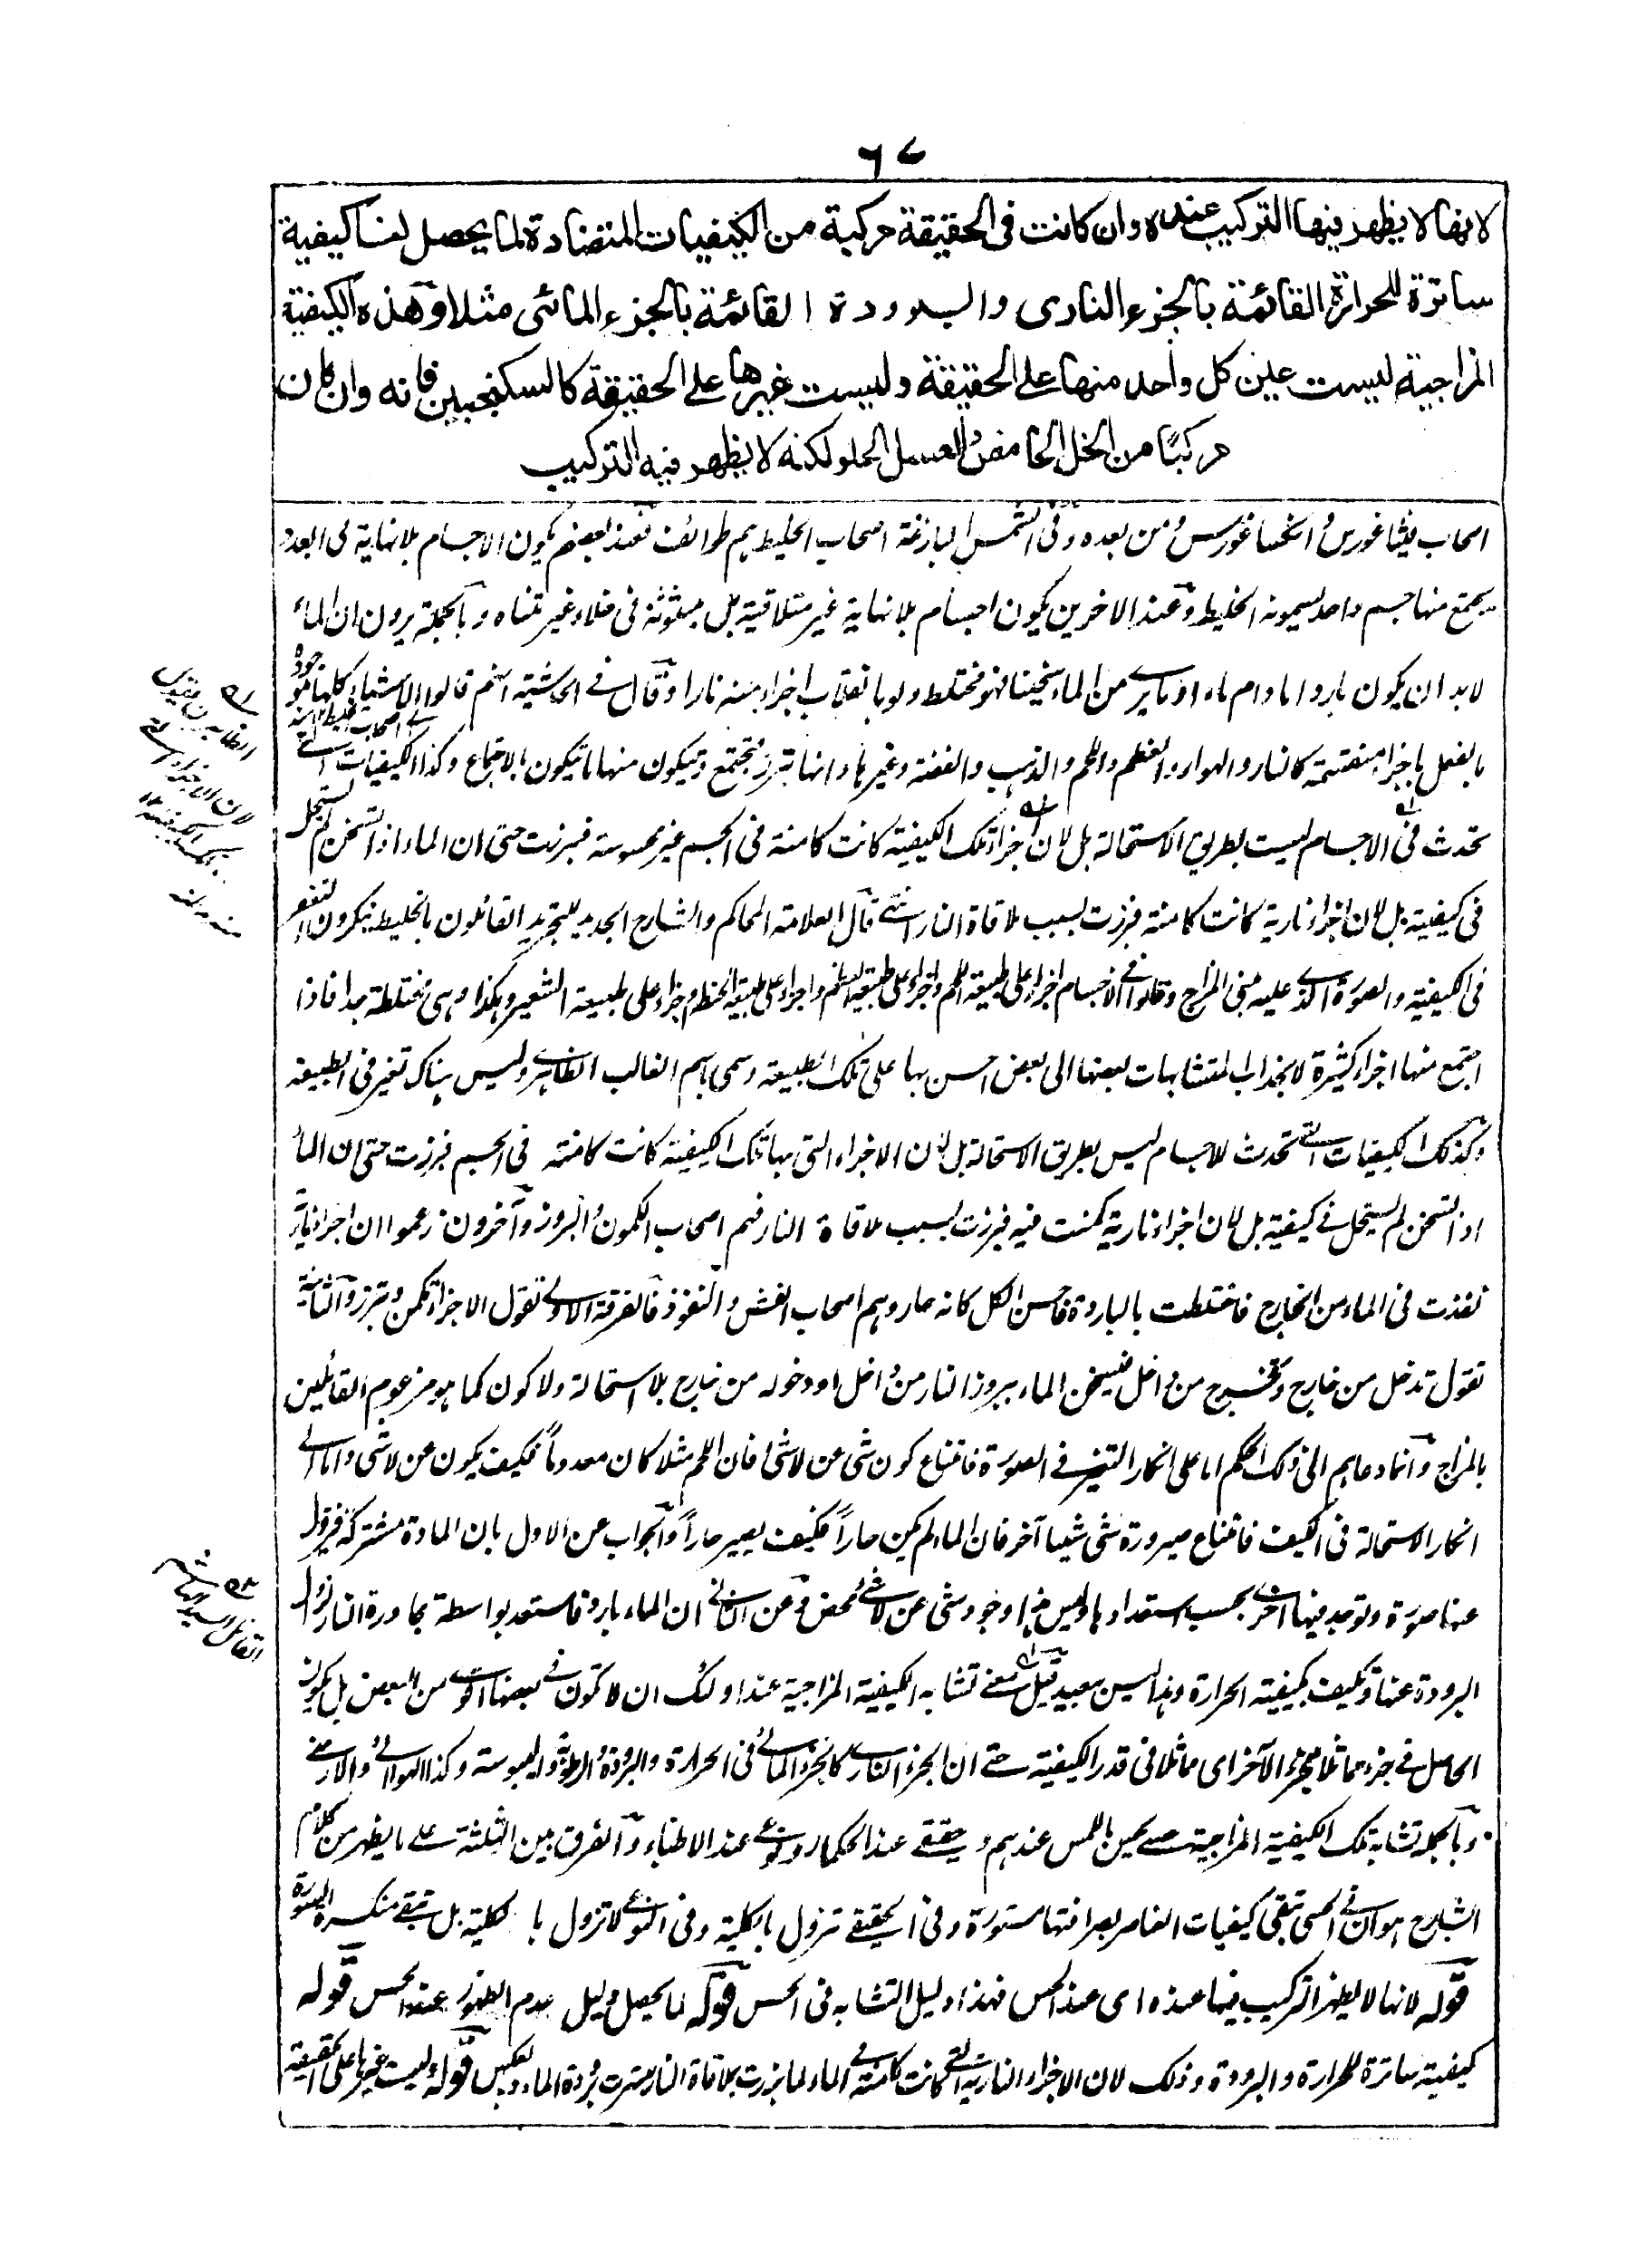 ٦٧
لانها لا يظهر فيها التركيب عنده وان كانت فى الحقيقة مركبة من الكيفيات المتضادة لما يحصل لها كيفية
ساترة للحرارة القائمة بالجزء النارى والبرودة القائمة بالجزء المائى مثلا وهذه الكيفية
المزاجية ليست عين كل واحد منها على الحقيقة وليست غيرها على الحقيقة كالسكنجبين فانه وان كان
مركبًا من الخل الحامض والعسل الحلو لكنه لا يظهر فيه التركيب
اصحاب فيثاغورس وانكساغورس ومن بعده وفى الشمس البازغة اصحاب الخليط هم طوائف فعند بعضهم يكون الاجسام بلا نهاية فى العدد
يجتمع منها جسم واحد يسمونه الخليط وعند الاخرين يكون اجسام بلا نهاية غير متلاقية بل مبثوثة فى خلاء غير متناه وبالجملة يرون ان الماء
لابد ان يكون باردا مادام ماء او ما يرى من الماء سخينا فهو مختلط ولو بانقلاب اجزاء منه نارا وقال فى الحاشية انهم قالوا الاشياء كلها موجودة
بالفعل باجزاء منقسمة كالنار والهواء والعظم واللحم والذهب والفضة وغيرها وانها تبرز وتجتمع ويتكون منها ما يتكون بالاجتماع وكذا الكيفيات التى
تحدث فى الاجسام ليست بطريق الاستحالة بل لان اجزاء تلك الكيفية كانت كامنة فى الجسم غير محسوسة فبرزت حتى ان الماء اذا تسخن لم يستحل
فى كيفيته بل لان اجزاء نارية كانت كامنة فبرزت بسبب ملاقاة النار انتهى قال العلامة المحاكم والشارح الجديد للتجريد القائلون بالخليط ينكرون التغير
فى الكيفية والصورة الذى عليه مبنى المزاج وقالوا فى الاجسام اجزاء على طبيعة اللحم واجزاء على طبيعة العظم واجزاء على طبيعة الحنطة واجزاء على طبيعة الشعير وهكذا وهى مختلطة جدا فاذا
اجتمع منها اجزاء كثيرة لانجذاب المتشابهات بعضها الى بعض احس بها على تلك الطبيعة وسمى باسم الغالب الظاهر وليس هناك تغير فى الطبيعة
وكذلك الكيفيات التى تحدث للاجسام ليس بطريق الاستحالة بل لان الاجزاء التى بها تلك الكيفية كانت كامنة فى الجسم فبرزت حتى ان الماء
اذا تسخن لم يستحل فى كيفيته بل لان اجزاء نارية كمنت فيه فبرزت بسبب ملاقاة النار فهم اصحاب الكمون والبروز وآخرون زعموا ان اجزاء نارية
نفذت فى الماء من الخارج فاختلطت بالباردة فاحس الكل كانه حار وهم اصحاب الفشو والنفوذ فالفرقة الاولى تقول الاجزاء تكمن وتبرز والثانية
تقول تدخل من خارج وتخرج من داخل فيسخن الماء ببروز النار من داخل او دخوله من خارج بلا استحالة ولا كون كما هو مزعوم القائلين
بالمزاج وانما دعاهم الى ذلك الحكم اما على انكار التغير فى الصورة فامتناع كون شئ عن لا شئ فان اللحم مثلا كان معدوماً فكيف يكون عن لا شئ واما الى
انكار الاستحالة فى الكيف فامتناع صيرورة شئ شيئا آخر فان الماء لم يكن حاراً فكيف يصير حاراً والجواب عن الاول بان المادة مشتركة فيزول
عنها صورة وتوجد فيها اخرى بحسب استعدادها وليس هذا وجود شئ عن لا شئ محض وعن الثانى ان الماء بارد فاستعد بواسطة مجاورة النار لزوال
البرودة عنها وتكيف بكيفية الحرارة وهذا ليس ببعيد قيل معنى تشابه الكيفية المزاجية عند اولئك ان لا تكون فى بعضها اقوى من البعض بل يكون
الحاصل فى جزء مماثلا لجزء الآخر اى مماثلا فى قدر الكيفية حتى ان الجزء النارى كالجزء المائى فى الحرارة والبرودة والرطوبة واليبوسة وكذا الهوائى والارضى
وبالجملة تشابه تلك الكيفية المزاجية حسى بحس اللمس عندهم وحقيقى عند الحكماء ونوعى عند الاطباء والفرق بين الثلثة على ما يظهر من كلام
الشارح هو ان فى الحسى تبقى كيفيات العناصر بصرافتها مستورة وفى الحقيقى تزول بالكلية وفى النوعى لا تزول بالكلية بل تبقى منكسرة الصورة
قوله لانها لا يظهر التركيب فيها عنده اى عند الحس فهذا دليل التشابه فى الحس قوله لما يحصل دليل عدم الظهور عند الحس قوله
كيفية ساترة للحرارة والبرودة وذلك لان الاجزاء النارية التى كانت كامنة فى الماء لما برزت بملاقاة النار سترت برودة الماء وبالعكس قوله وليست غيرها على الحقيقة